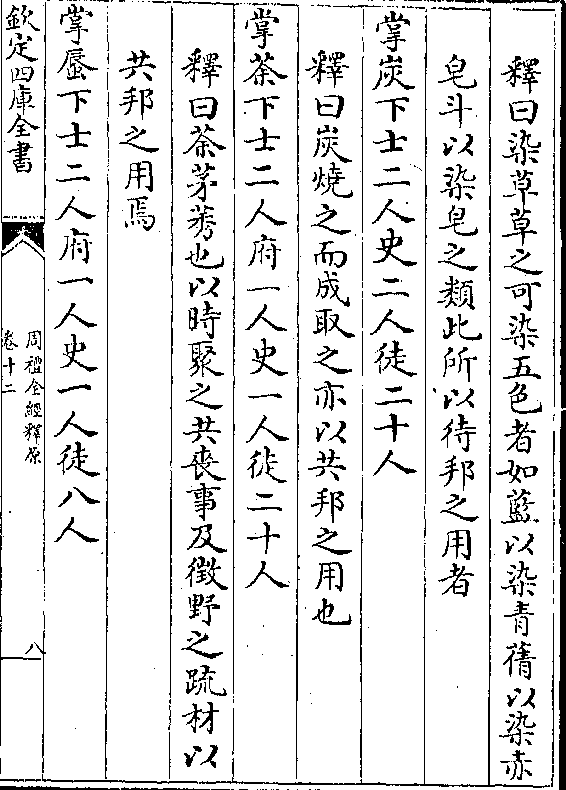 釋曰染草草之可染五色者如藍以染青蒨以染赤
皂斗以染皂之類此所以待邦之用者
掌炭下士二人史二人徒二十人
釋曰炭燒之而成取之亦以共邦之用也
掌荼下士二人府一人史一人徒二十人
釋曰荼茅莠也以時聚之共喪事及徵野之疏材以
共邦之用焉
掌蜃下士二人府一人史一人徒八人
欽定四庫全書
周禮全經釋原
卷十二
八